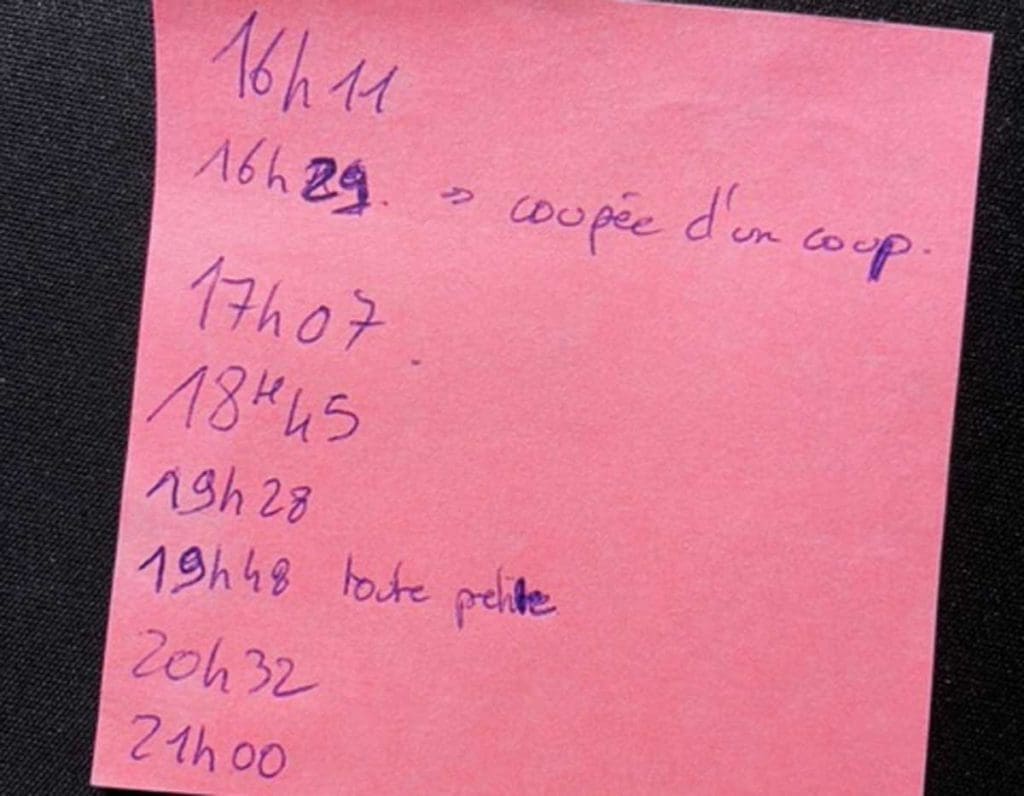 16h11
16h29. => coupée d'un coup.
17h07
18H45
19h28
19h48 toute petite
20h32
21h00